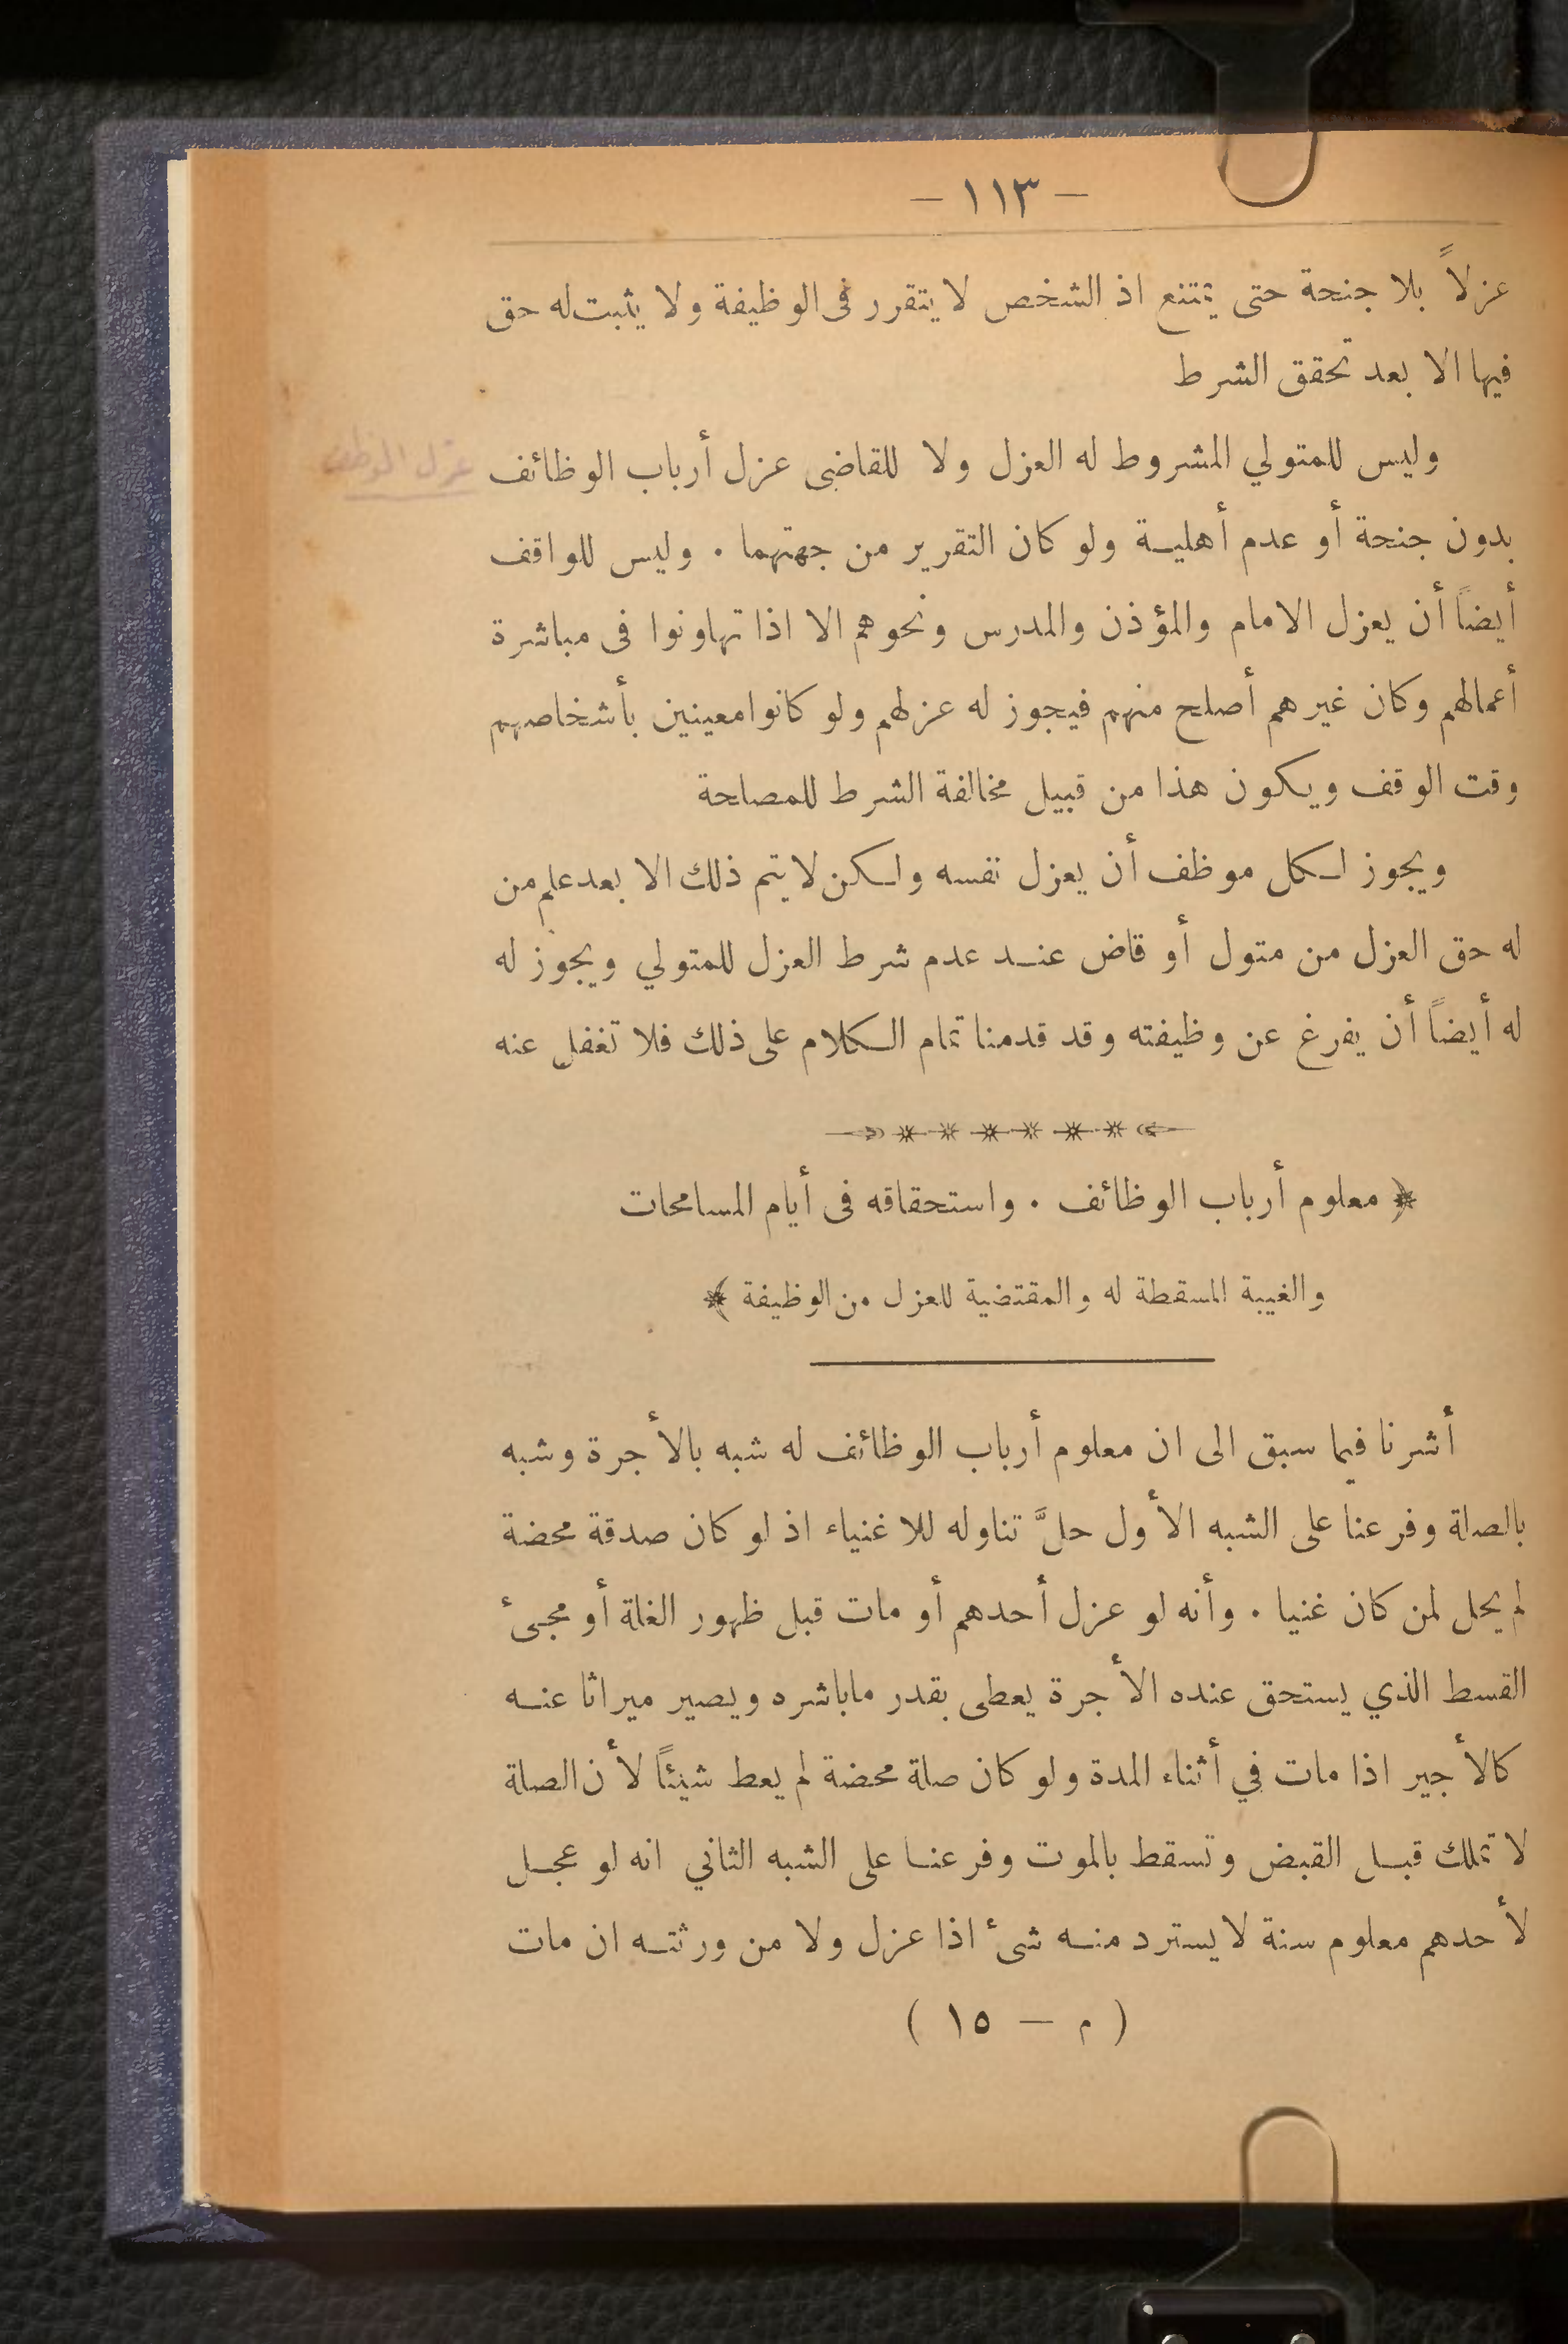 — ١١٣ —
عزلاً بلا جنحة حتى يمتنع اذ الشخص لا يتقرر فى الوظيفة ولا يثبت له حق
فيها الا بعد تحقق الشرط
وليس للمتولي المشروط له العزل ولا للقاضى عزل أرباب الوظائف
عزل الموظف
بدون جنحة أو عدم أهلية ولو كان التقرير من جهتهما . وليس للواقف
أيضاً أن يعزل الامام والمؤذن والمدرس ونحوهم الا اذا تهاونوا فى مباشرة
أعمالهم وكان غيرهم أصلح منهم فيجوز له عزلهم ولو كانوا معينين بأشخاصهم
وقت الوقف ويكون هذا من قبيل مخالفة الشرط للمصلحة
ويجوز لكل موظف أن يعزل نفسه ولكن لا يتم ذلك الا بعد علم من
له حق العزل من متول أو قاض عند عدم شرط العزل للمتولي ويجوز له
له أيضاً أن يفرغ عن وظيفته وقد قدمنا تمام الكلام على ذلك فلا تغفل عنه
﴿ معلوم أرباب الوظائف . واستحقاقه فى أيام المسامحات
والغيبة المسقطة له والمقتضية للعزل من الوظيفة ﴾
أشرنا فيما سبق الى ان معلوم أرباب الوظائف له شبه بالأجرة وشبه
بالصلة وفرعنا على الشبه الأول حلَّ تناوله للاغنياء اذ لو كان صدقة محضة
لم يحل لمن كان غنيا . وأنه لو عزل أحدهم أو مات قبل ظهور الغلة أو مجىء
القسط الذي يستحق عنده الأجرة يعطى بقدر ماباشره ويصير ميراثا عنه
كالأجير اذا مات في أثناء المدة ولو كان صلة محضة لم يعط شيئاً لأن الصلة
لا تملك قبل القبض وتسقط بالموت وفرعنا على الشبه الثاني انه لو عجل
لأحدهم معلوم سنة لا يسترد منه شىء اذا عزل ولا من ورثته ان مات
( م — ١٥ )